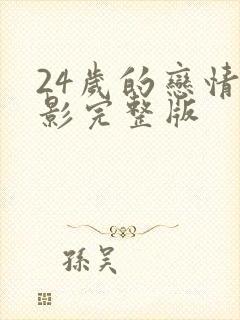 24歲的戀情
影完整版
孫吴